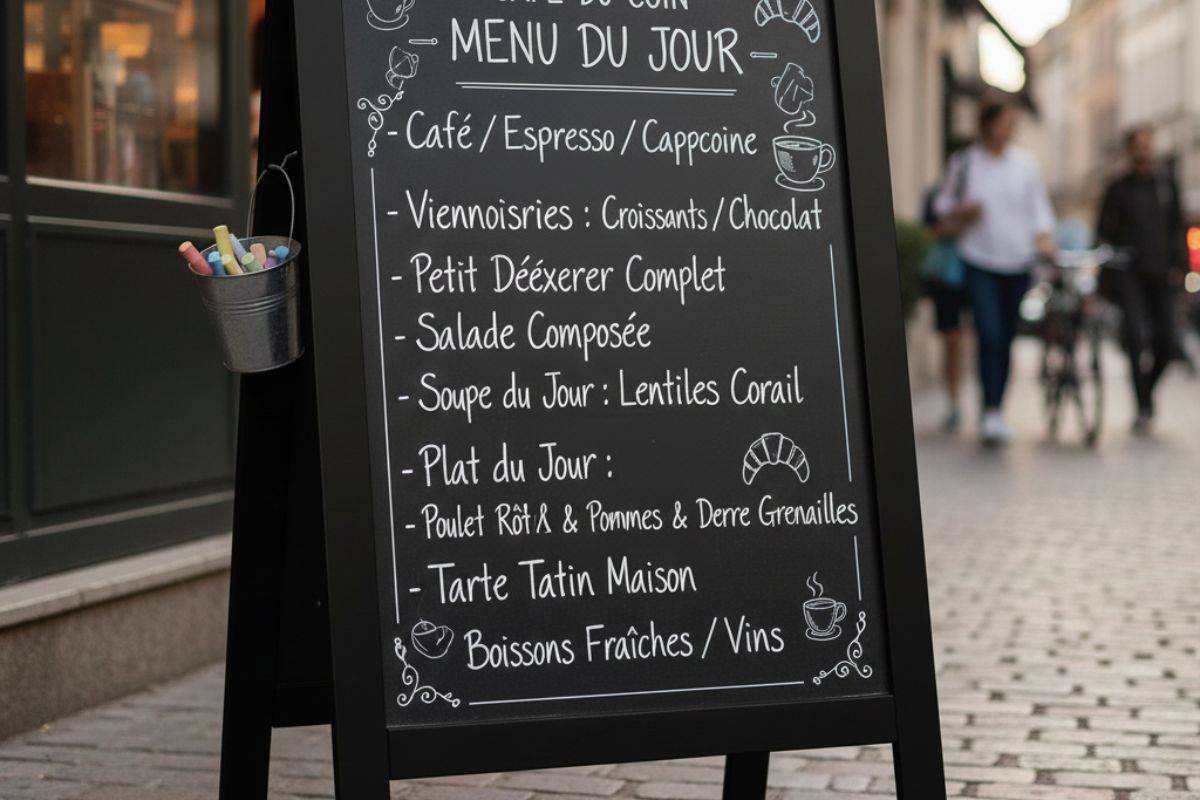 CAFÉ DU COIN
MENU DU JOUR
- Café / Espresso / Cappcoine
- Viennoisries : Croissants / Chocolat
- Petit Dééxerer Complet
- Salade Composée
- Soupe du Jour : Lentiles Corail
- Plat du Jour :
- Poulet & Pommes & Derre Grenailles
- Tarte Tatin Maison
Boissons Fraîches / Vins